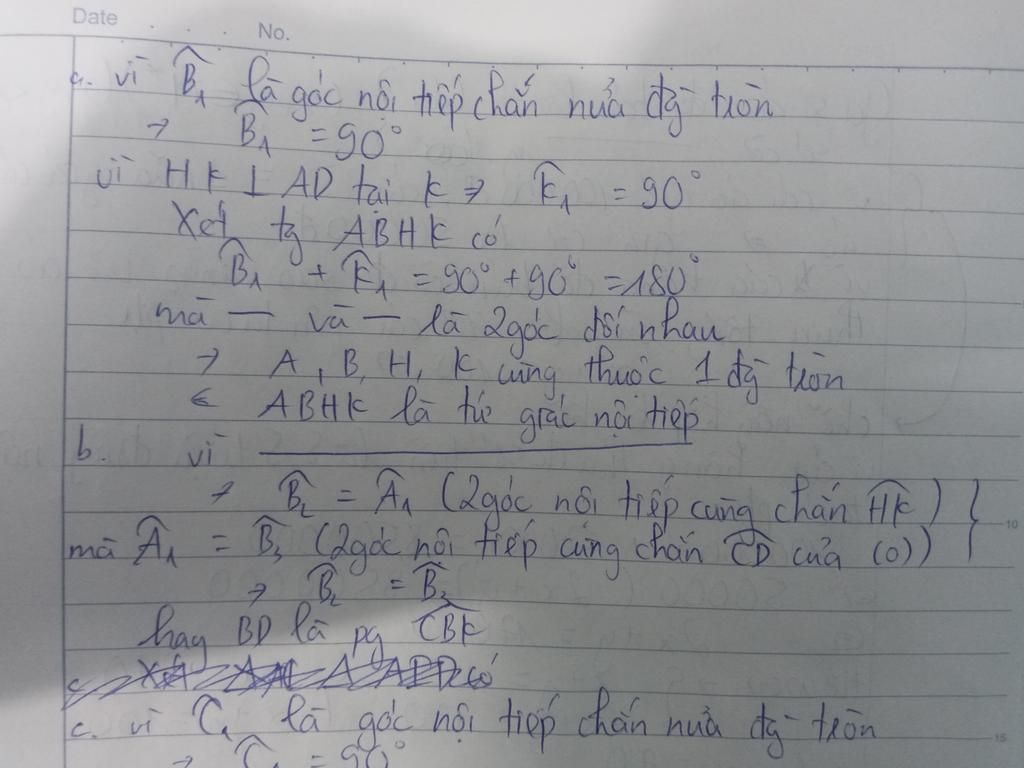 Date . . .
No.
a. vì B̂₁ là góc nội tiếp chắn nửa đg tròn
→ B̂₁ = 90°
vì HK ⊥ AD tại K → K̂₁ = 90°
Xét tg ABHK có
B̂₁ + K̂₁ = 90° + 90° = 180°
mà — và — là 2 góc đối nhau
→ A, B, H, K cùng thuộc 1 đg tròn
ABHK là tứ giác nội tiếp
b. vì ————
→ B̂₂ = Â₁ (2 góc nội tiếp cùng chắn HK) }
mà Â₁ = B̂₃ (2 góc nội tiếp cùng chắn CD của (O))
10
→ B̂₂ = B̂₃
hay BD là pg CBK
có
c. vì Ĉ₁ là góc nội tiếp chắn nửa đg tròn
15
→ Ĉ₁ = 90°